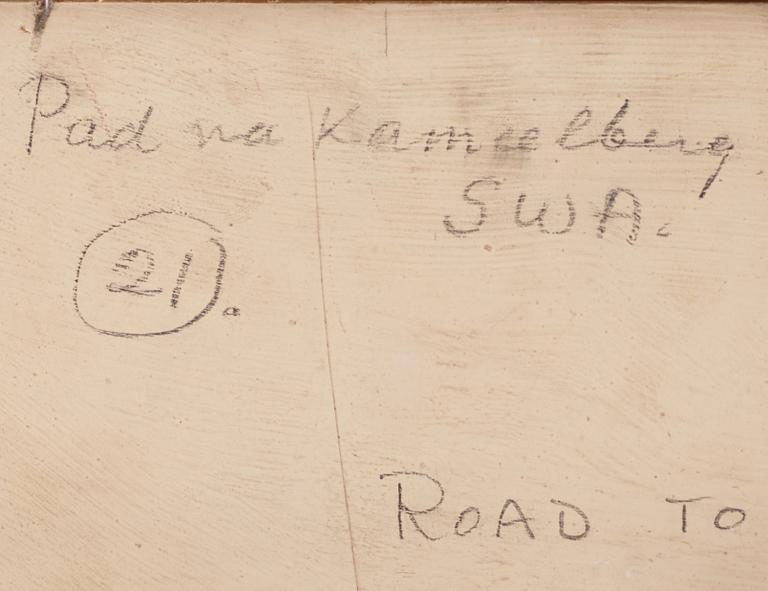 Pad na Kameelberg
SWA.
ROAD TO